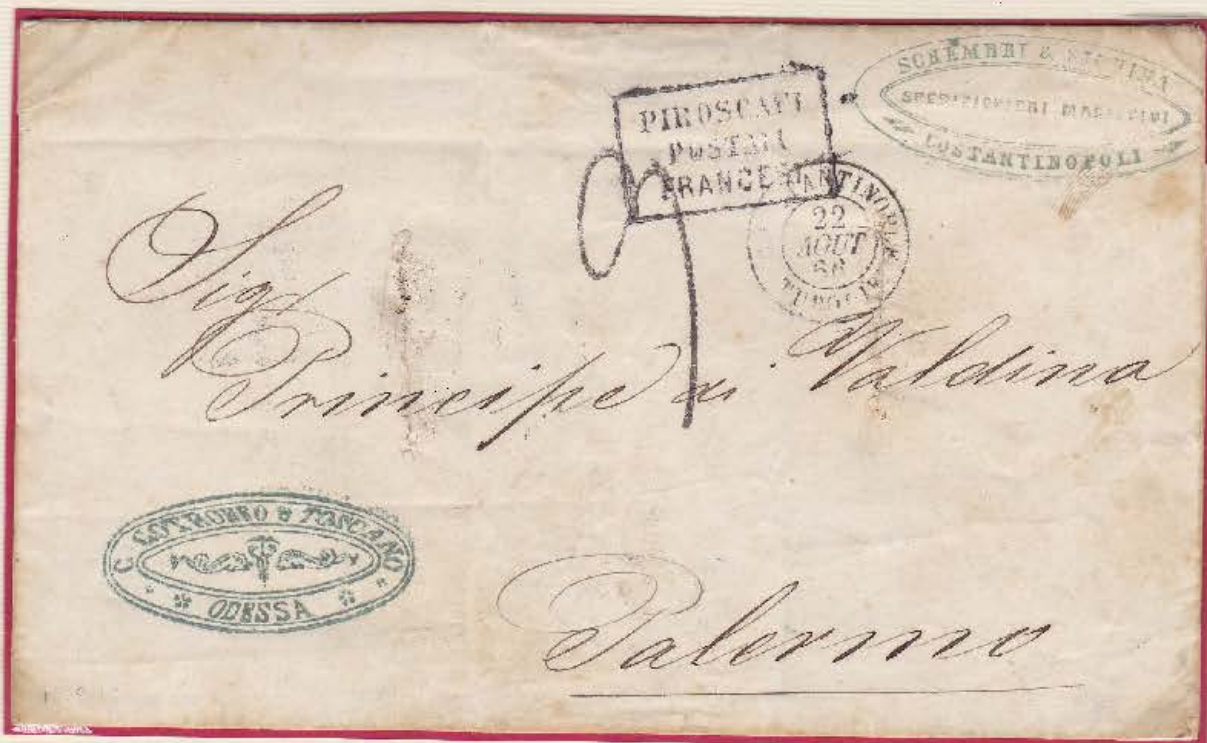 SCHEMBRI &
SPEDIZIONIERI MARITTIMI
COSTANTINOPOLI
PIROSCAFI
POSTALI
FRANCESI
22
AOUT
66
TURQUIE
Sigr
Principe di Valdina
C. LOTEROMEO & TOSCANO
ODESSA
Palermo